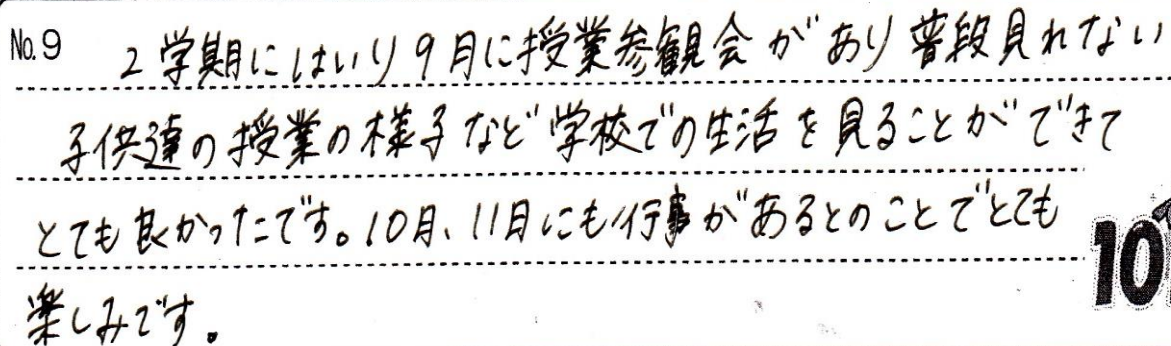 No.9 2学期にはいり9月に授業参観会があり普段見れない
子供達の授業の様子など学校での生活を見ることができて
とても良かったです。10月、11月にも行事があるとのことでとても
楽しみです。
10